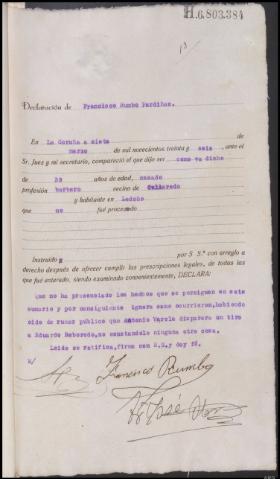 H.6.803.384
Declaración de Francisco Rumbo Pardiñas.
En La Coruña a siete de
marzo de mil novecientos treinta y seis ante el
Sr. Juez y mi secretario, compareció el que dijo ser como va dicho
de años de edad, casado
profesión barbero vecino de
y habitante en Ledoño
que no fué procesado
Instruído por S Sª con arreglo a
derecho después de ofrecer cumplir las prescripciones legales, de todas las
que fué enterado, siendo examinado convenientemente, DECLARA:
Que no ha presenciado los hechos que se persiguen en este
sumario y por consiguiente ignora como ocurrieron, habiendo
oido de rumor público que Antonio Varela disparara un tiro
a Eduardo Raboredo, no constandole ninguna otra cosa.
Leido se ratifica, firma con S.S. y doy fé.
Francisco Rumbo
José